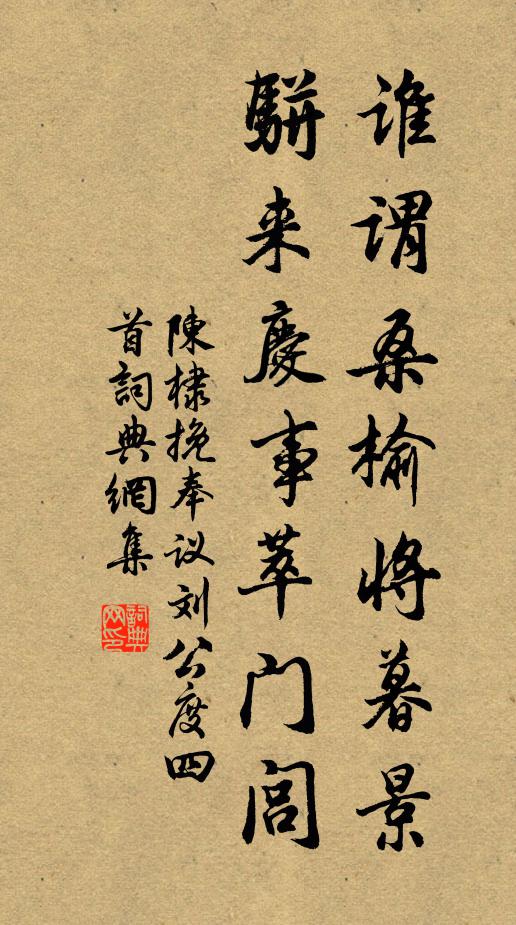 谁谓桑榆将暮景
駢来慶事萃门闾
陳棣挽奉议刘公度四
首詞典網集
詞典網印